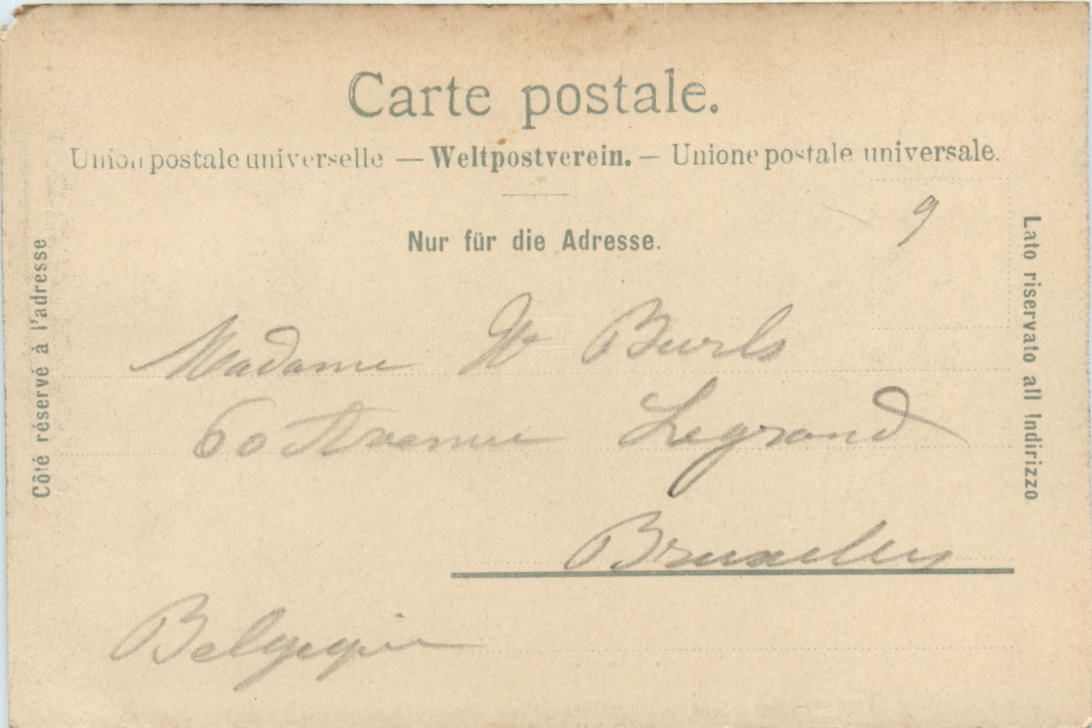 Carte postale.
Union postale universelle — Weltpostverein. — Unione postale universale.
Nur für die Adresse.
9
Côté réservé à l'adresse
Lato riservato all Indirizzo
Madame W Burls
60 Avenue Legrand
Bruxelles
Belgique